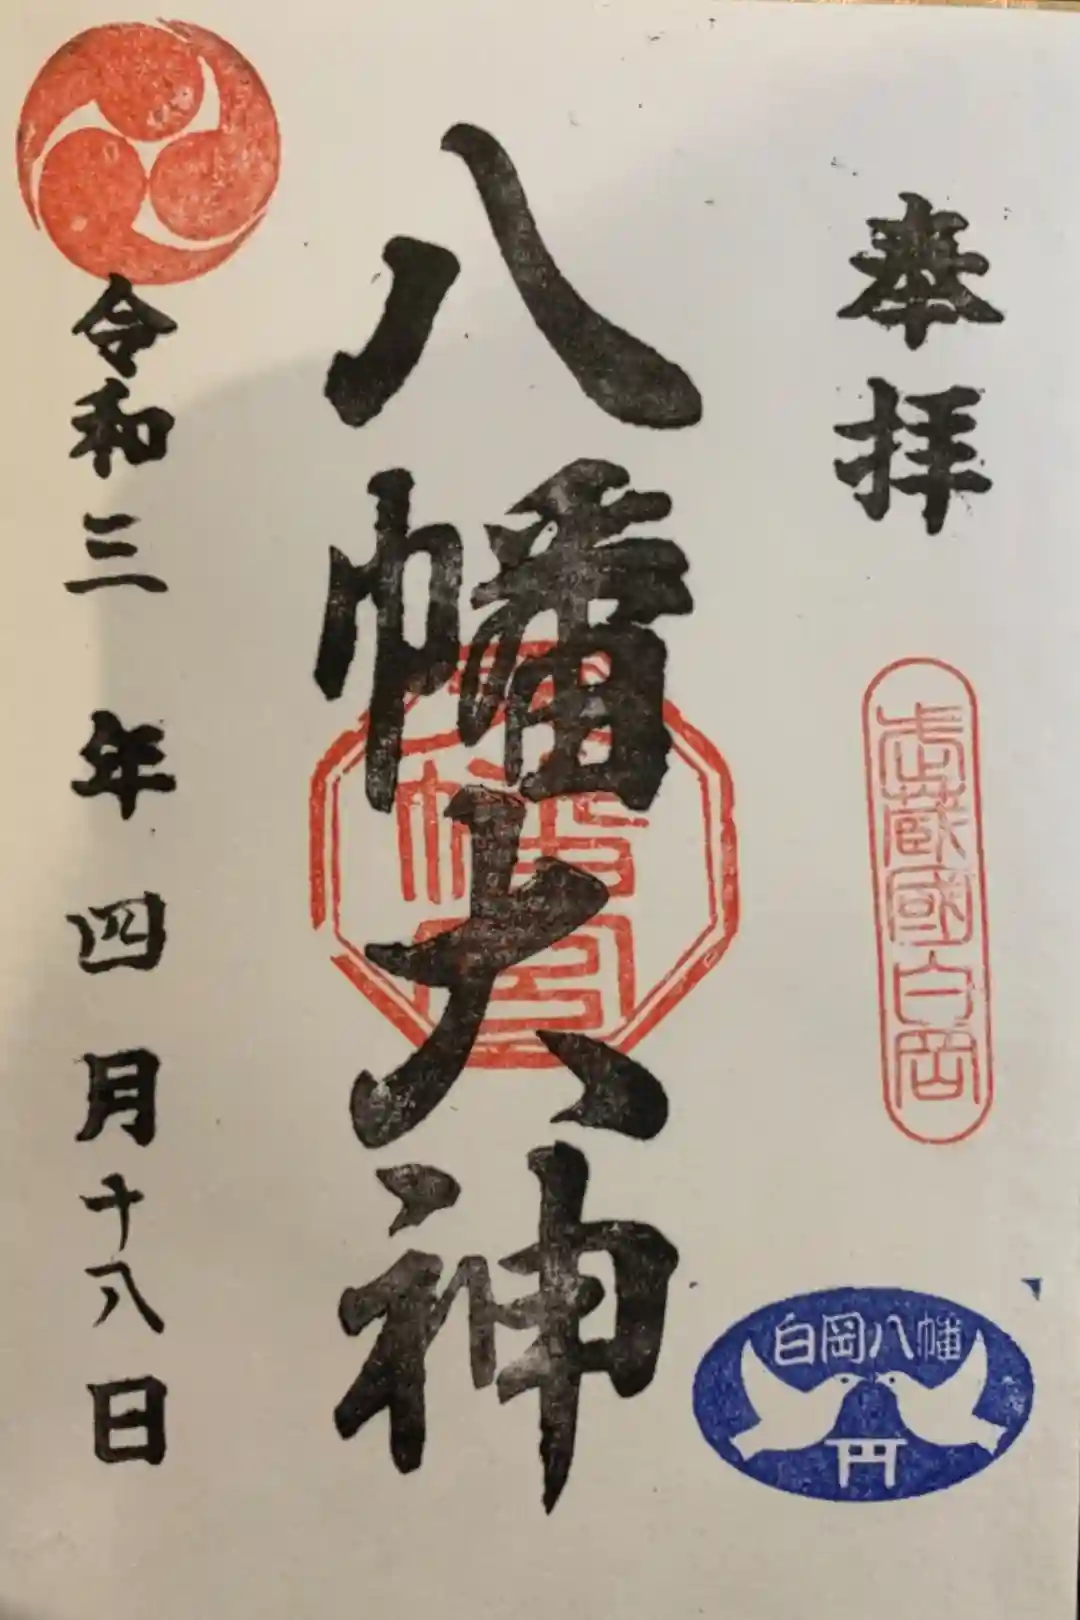 奉拝
武蔵國白岡
白岡八幡
八幡大神
令和三年四月十八日